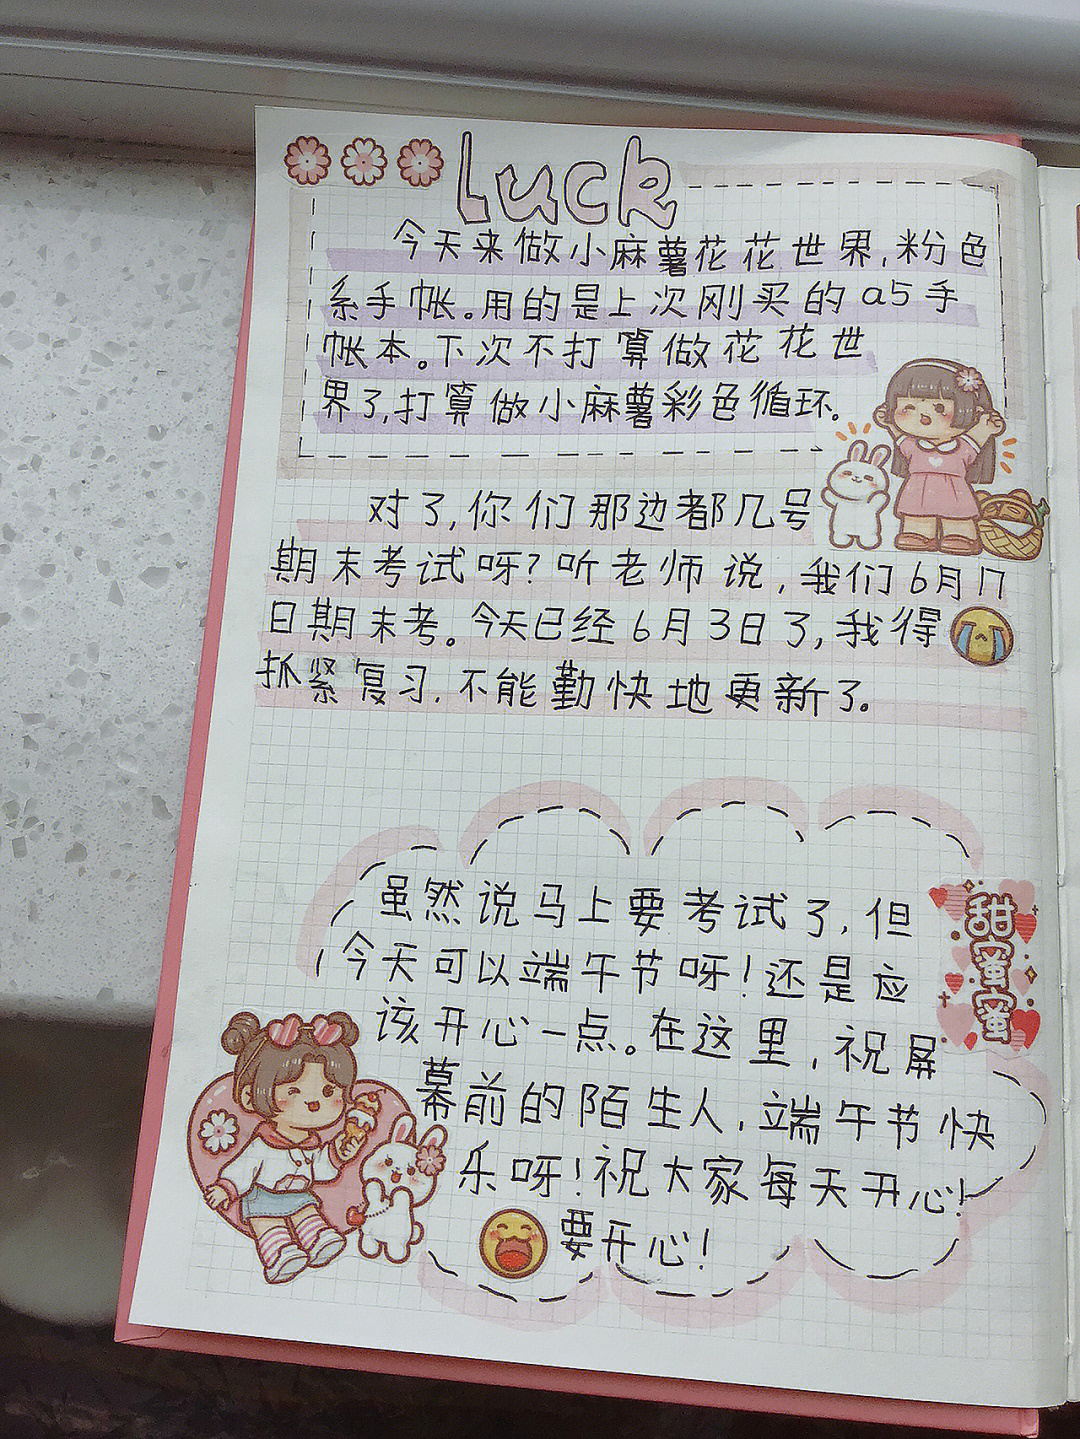 luck
今天来做小麻薯花花世界,粉色
系手帐。用的是上次刚买的a5手
帐本。下次不打算做花花世
界了,打算做小麻薯彩色循环。
对了,你们那边都几号
期末考试呀?听老师说,我们6月17
日期末考。今天已经6月3日了,我得
抓紧复习.不能勤快地更新了。
虽然说马上要考试了,但
今天可以端午节呀!还是应
该开心一点。在这里,祝屏
幕前的陌生人,端午节快
乐呀!祝大家每天开心!
要开心!
甜蜜蜜